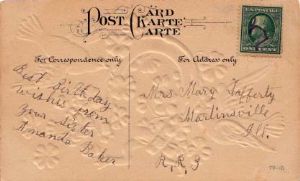 POST CARD
KARTE
CARTE
For Correspondence only
For Address only
U.S. POSTAGE
ONE CENT
Best Birthday
wishes from
your sister
Amanda Baker
Mrs Mary Lafferty
Martinsville
Ill.
R.R.